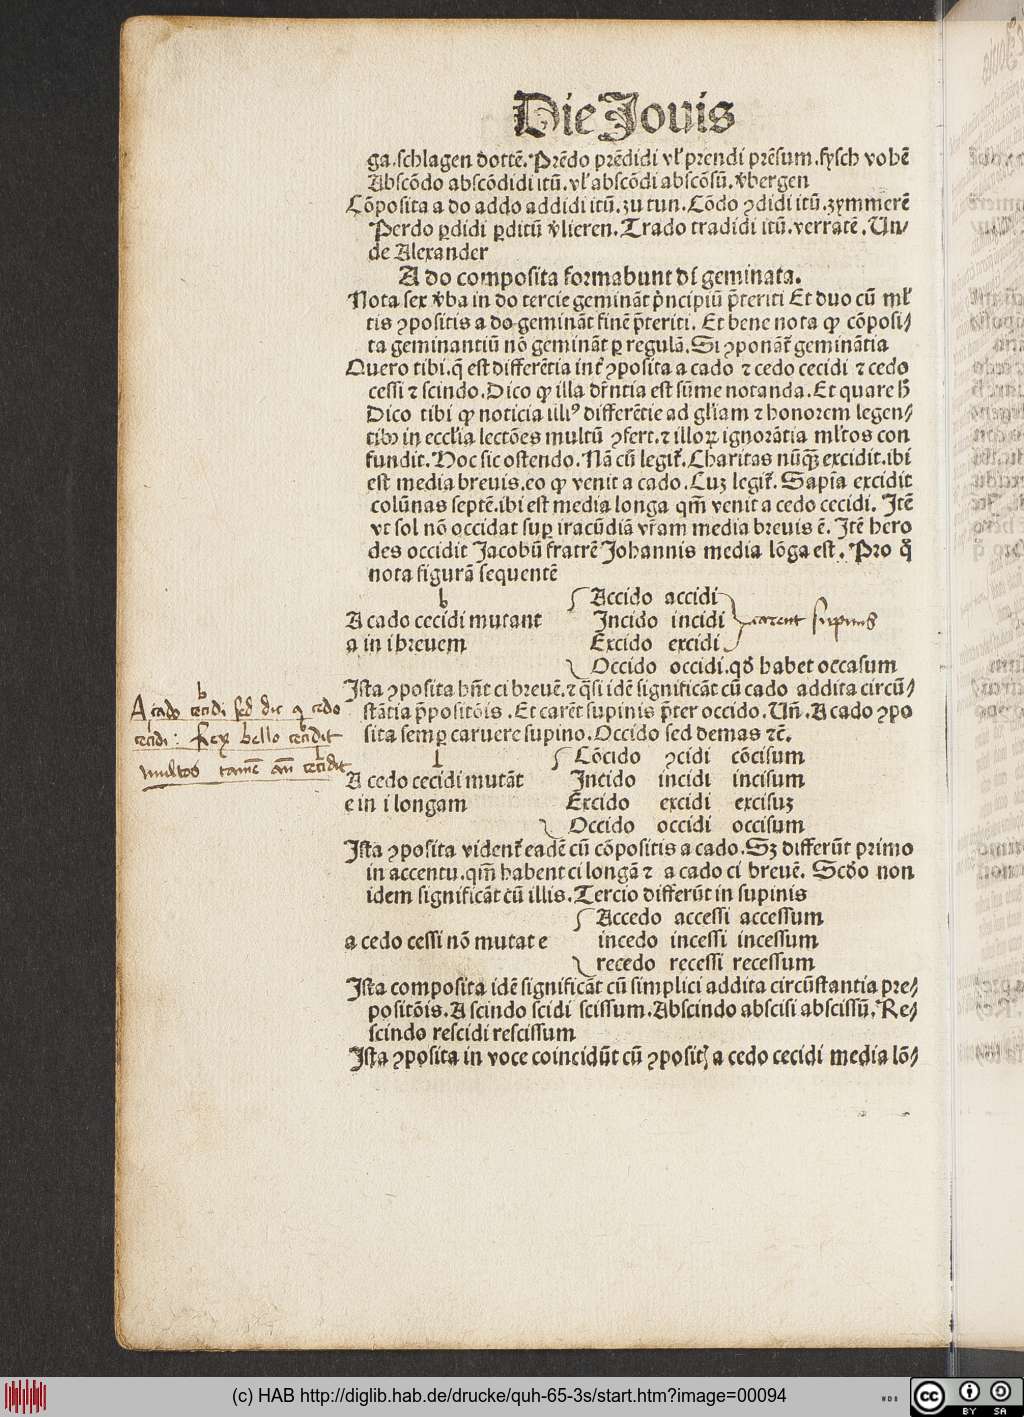 Die Jouis
ga.schlagen dottē. Prēdo prēdidi vl' prendi prēsum. fysch vobē
Abscōdo abscōdidi itū. vl' abscōdi abscōsū. v̓bergen
Cōposita a do addo addidi itū. zu tun. Cōdo ꝯdidi itū. zymmerē
Perdo ꝑdidi ꝑditū v̓lieren. Trado tradidi itū. verratē. Un⸗
de Alexander
A do composita formabunt di geminata.
Nota sex v̓ba in do tercie gemināt pͥncipiū p̄teriti Et duo cū ml'
tis ꝯpositis a do gemināt finē p̄teriti. Et bene nota ꝙ cōposi⸗
ta geminantiū nō gemināt ꝑ regulā. Si ꝯponāt᷑ geminātia
Quero tibi. q̄ est differētia int̓ ꝯposita a cado ⁊ cedo cecidi ⁊ cedo
cessi ⁊ scindo. Dico ꝙ illa dr̄ntia est sūme notanda. Et quare h̄
Dico tibi ꝙ noticia illiꝰ differētie ad gl'iam ⁊ honorem legen⸗
tibꝫ in eccl'ia lectōes multū ꝯfert. ⁊ illoꝝ ignorātia ml'tos con
fundit. Hoc sic ostendo. Nā cū legit᷑. Charitas nūqꝫ excidit. ibi
est media breuis. eo ꝙ venit a cado. Cuz legit᷑. Sapīa excidit
colūnas septē. ibi est media longa qm̄ venit a cedo cecidi. Itē
vt sol nō occidat suꝑ iracūdiā vr̄am media breuis ē. Itē hero
des occidit Jacobū fratrē Johannis media lōga est. Pro q̊
nota figurā sequentē
b
Accido accidi
A cado cecidi mutant Incido incidi carent supinis
a in i breuem Excido excidi
Occido occidi. qd̓ habet occasum
Ista ꝯposita hn̄t ci breuē. ⁊ q̄si idē significāt cū cado addita circū⸗
stātia p̄positōis. Et carēt supinis p̄ter occido. Un̄. A cado ꝯpo
sita semꝑ caruere supino. Occido sed demas ⁊c̄.
b
A cado cecidi sed dic a cedo
cecidi: Rex bello cecidit
multos tamē cecidit
l
Cōcido ꝯcidi cōcisum
A cedo cecidi mutāt Incido incidi incisum
e in i longam Excido excidi excisuz
Occido occidi occisum
Ista ꝯposita vident᷑ eadē cū cōpositis a cado. Sꝫ differūt primo
in accentu. qm̄ habent ci longā ⁊ a cado ci breuē. Scd̓o non
idem significāt cū illis. Tercio differūt in supinis
Accedo accessi accessum
a cedo cessi nō mutat e incedo incessi incessum
recedo recessi recessum
Ista composita idē significāt cū simplici addita circūstantia pre⸗
positōis. A scindo scidi scissum. Abscindo abscisi abscissū. Re⸗
scindo rescidi rescissum
Ista ꝯposita in voce coincidūt cū ꝯpositꝭ a cedo cecidi media lō⸗
(c) HAB http://diglib.hab.de/drucke/quh-65-3s/start.htm?image=00094
WDB
cc BY SA